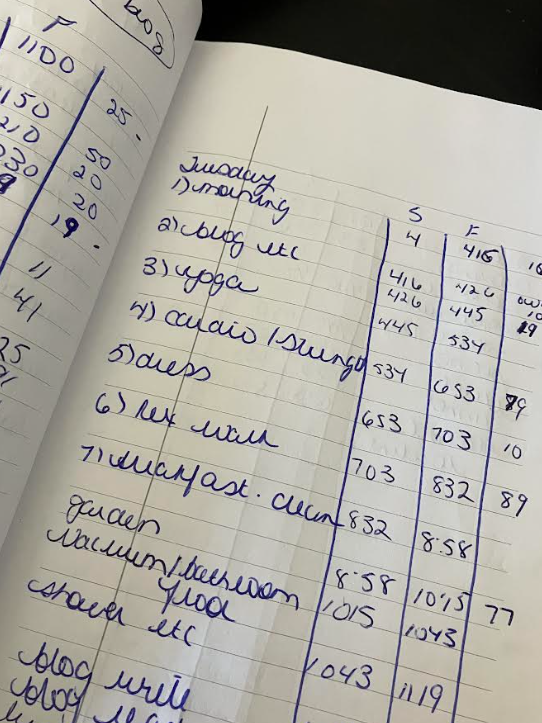 blog
F
1100
25.
150
50
210
20
030
20
19.
11
41
25
Tuesday
S F
1) morning 4 416
2) blog etc 416 426
3) yoga 426 445 19
4) cardio / 445 534
5) dress 534 653 79
6) Rex walk 653 703 10
7) breakfast. clean 703 832 89
garden 832 8:58
vacuum / bathroom 8:58 10:15 77
floor 1015 1043
shower etc 1043 1119
blog write
blog